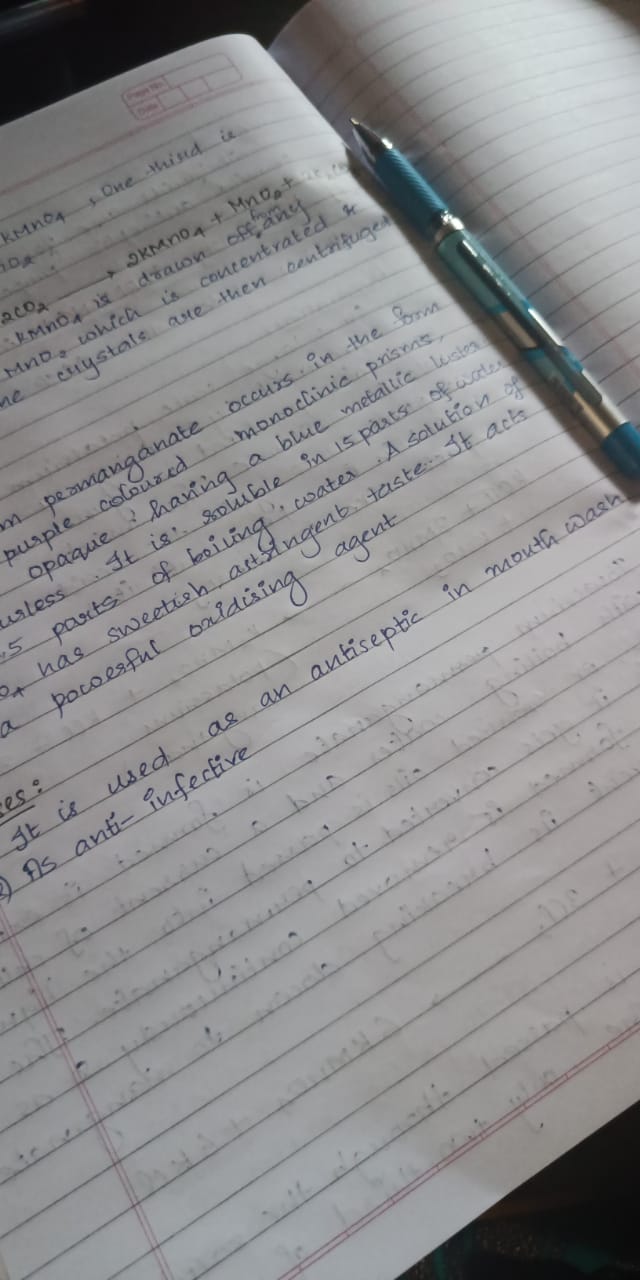 Page No.
Date
KMnO4 , One third is
nO2 :
2CO2 → 2KMnO4 + MnO2 +
KMnO4 is drawn off, any
MnO2 which is concentrated &
crystals are then centrifuged
permanganate occurs in the form
purple coloured monoclinic prisms,
opaque, having a blue metallic luster
urless. It is soluble in 15 parts of water
.5 parts of boiling water. A solution of
O4 has sweetish, astringent taste. It acts
a powerful oxidising agent
es:
It is used as an antiseptic in mouth wash
2) As anti-infective